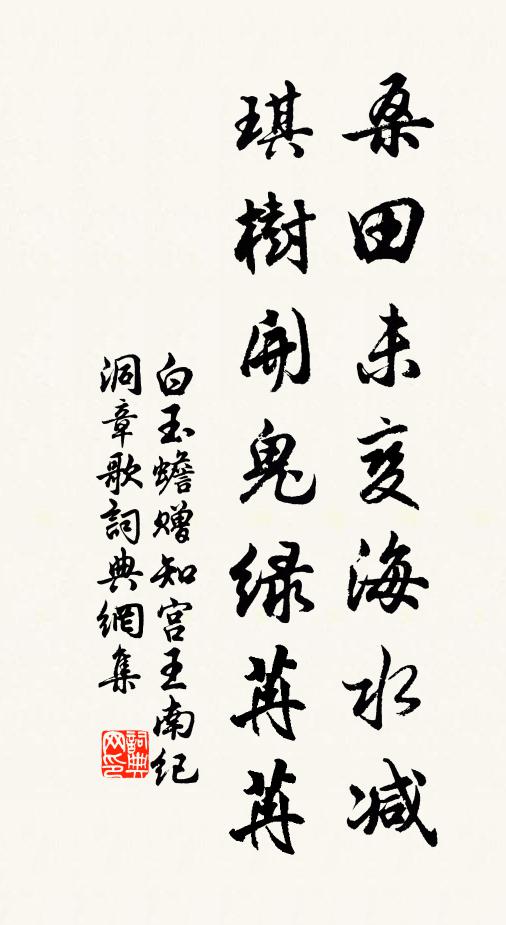 桑田未变海水减
琪樹開鬼緑苒苒
白玉蟾赠知宫王南纪
洞章歌詞典網集
詞典网印